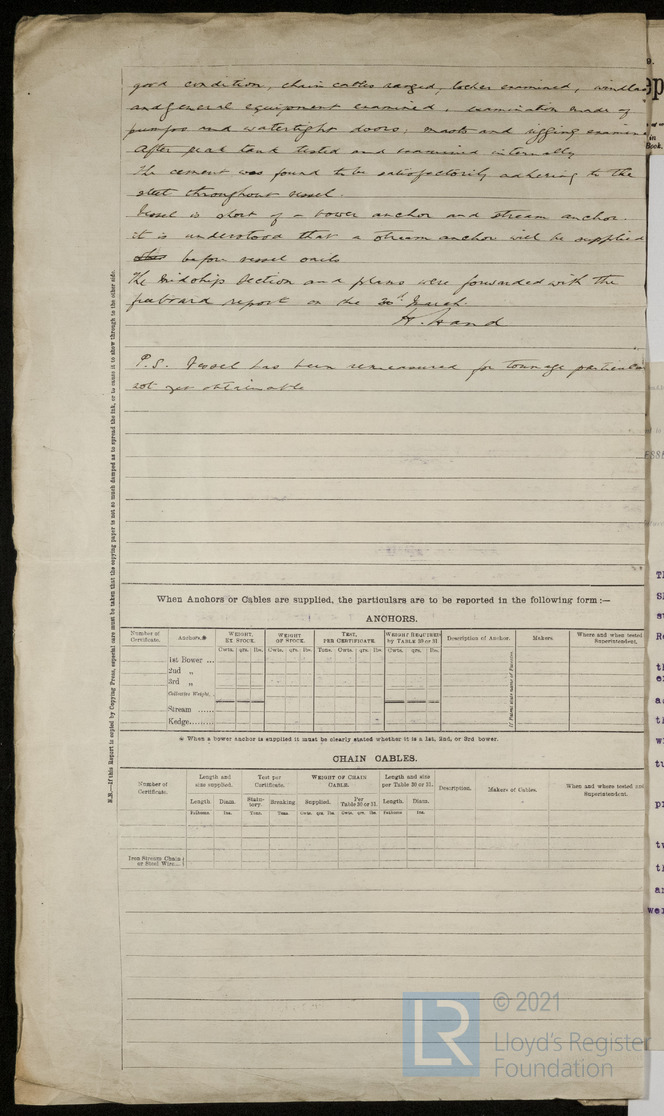 good condition, chain cables ranged, locker examined, windlas
and general equipment examined, examination made of
pumps and watertight doors, masts and rigging examin
After peak tank tested and examined internally
The cement was found to be satisfactorily adhering to the
steel throughout vessel.
Vessel is short of a bower anchor and stream anchor.
it is understood that a stream anchor will be supplied
before vessel sails
The Midship Section and plans were forwarded with the
freeboard report on the 30th March.
H. Hand
P.S. Vessel has been remeasured for tonnage particula
not yet obtainable
N.B.—If this Report is copied by Copying Press, especial care must be taken that the copying paper is not so much damped as to spread the ink, or to cause it to show through to the other side.
When Anchors or Cables are supplied, the particulars are to be reported in the following form :—
ANCHORS.
Number of Certificate.
Anchors.*
WEIGHT, EX STOCK.
WEIGHT OF STOCK.
TEST, PER CERTIFICATE.
WEIGHT REQUIRED BY TABLE 30 or 31
Description of Anchor.
Makers.
Where and when tested
Superintendent.
Cwts. qrs. lbs. Cwts. qrs. lbs. Tons. Cwts. qrs. lbs. Cwts. qrs. lbs.
1st Bower ...
2nd „
3rd „
Collective Weight.
Stream ......
Kedge.........
If Patent state name of Patentee.
* When a bower Anchor is supplied it must be clearly stated whether it is a 1st, 2nd, or 3rd bower.
CHAIN CABLES.
Number of Certificate.
Length and size supplied.
Test per Certificate.
WEIGHT OF CHAIN CABLE.
Length and size per Table 30 or 31.
Description.
Makers of Cables.
When and where tested and
Superintendent.
Length. Diam. Statutory. Breaking. Supplied. Per Table 30 or 31. Length. Diam.
Fathoms Ins. Tons. Tons. Cwts. qrs. lbs. Cwts. qrs. lbs. Fathoms Ins.
Iron Stream Chain
or Steel Wire...
© 2021
LR
Lloyd's Register
Foundation